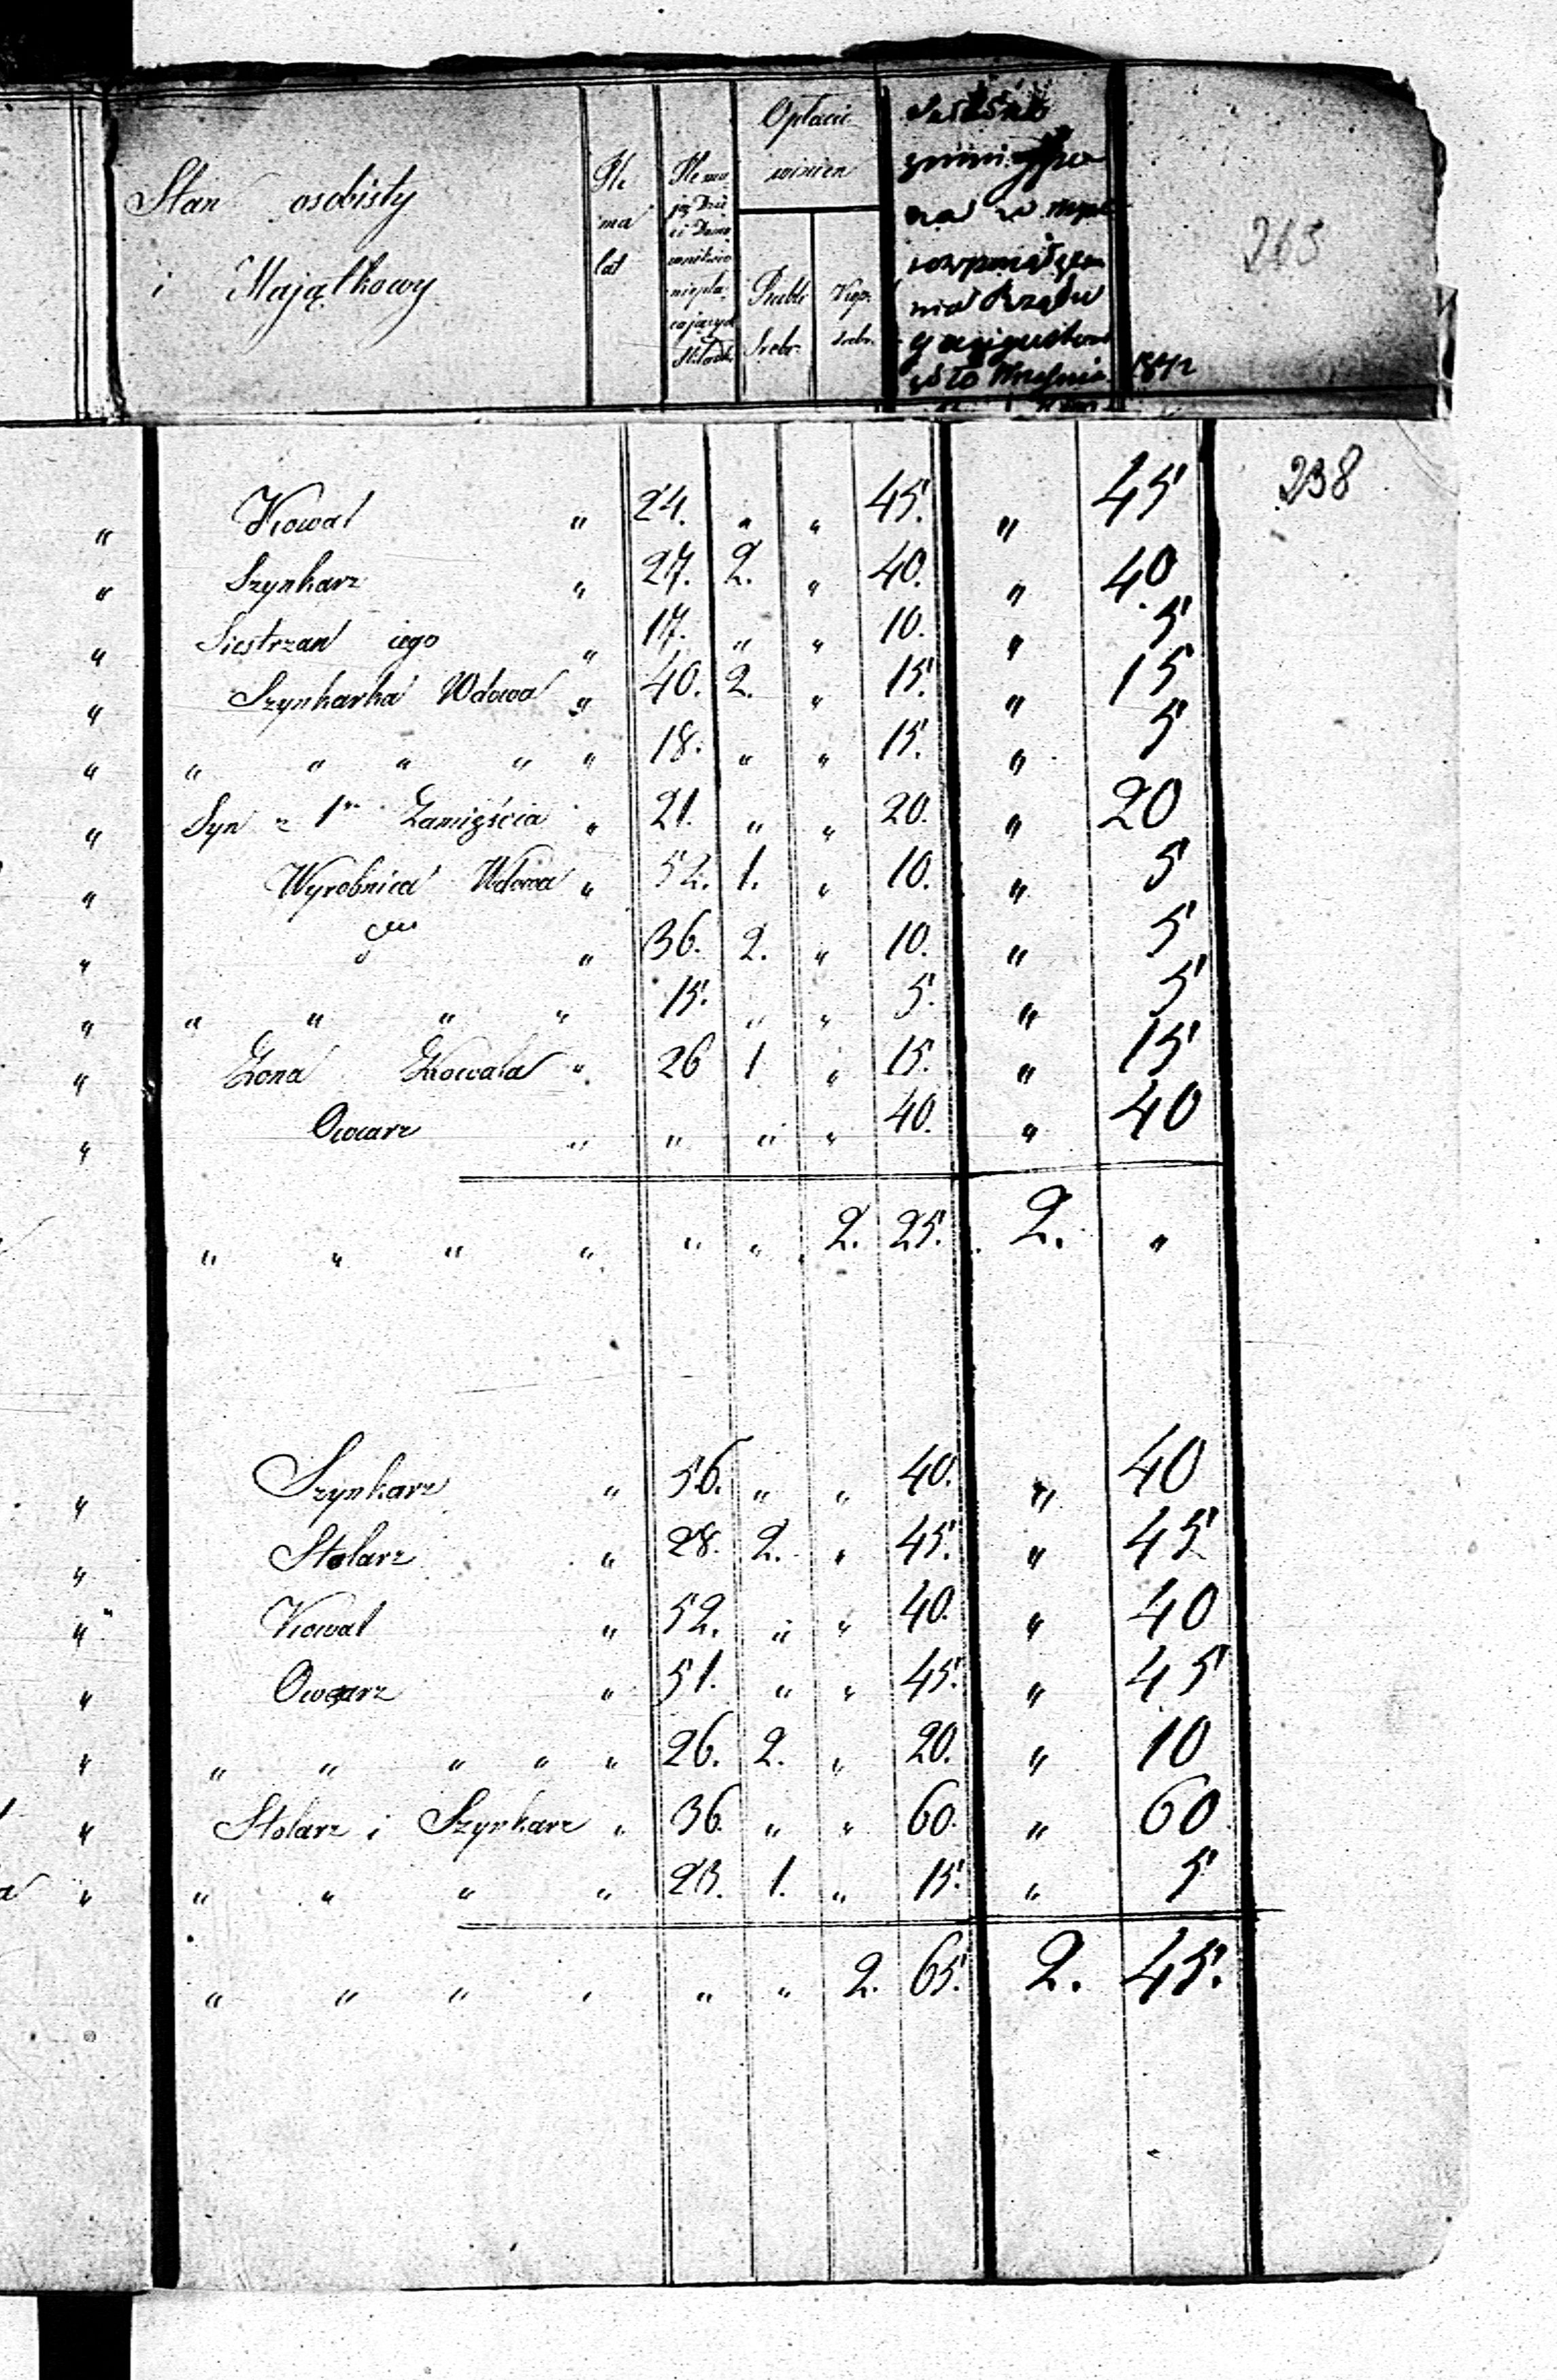 Stan osobisty
i Majątkowy
Ile
ma
lat
Ile ma
Opłacić
winien
Rubli
Srebr.
Kop.
srebr.
Rządu
Września 1842
265
238
" Kowal " 24. " " 45. " 45
" Szynkarz " 27. 2. " 40. " 40.
" Siestrzan iego " 17. " " 10. " 5
" Szynkarka Wdowa " 40. 2. " 15. " 15
" " " " " " 18. " " 15. " 5
" Syn z 1go Zamięścia " 21. " " 20. " 20
" Wyrobnica Wdowa " 52. 1. " 10. " 5
" " 36. 2. " 10. " 5
" " " " " 15. " " 5. " 5
" Żona Kowala " 26 1 " 15. " 15
" Owcarz " " " " 40. " 40
" " " " " " 2. 25. 2. "
" Szynkarz " 56. " " 40. " 40
" Stolarz " 28. 2. " 45. " 45
" Kowal " 52. " " 40. " 40
" Owczarz " 51. " " 45. " 45
" " " " " " 26. 2. " 20. " 10
" Stolarz i Szynkarz " 36. " " 60. " 60
" " " " " 23. 1. " 15. " 5
" " " " " " 2. 65. 2. 45.